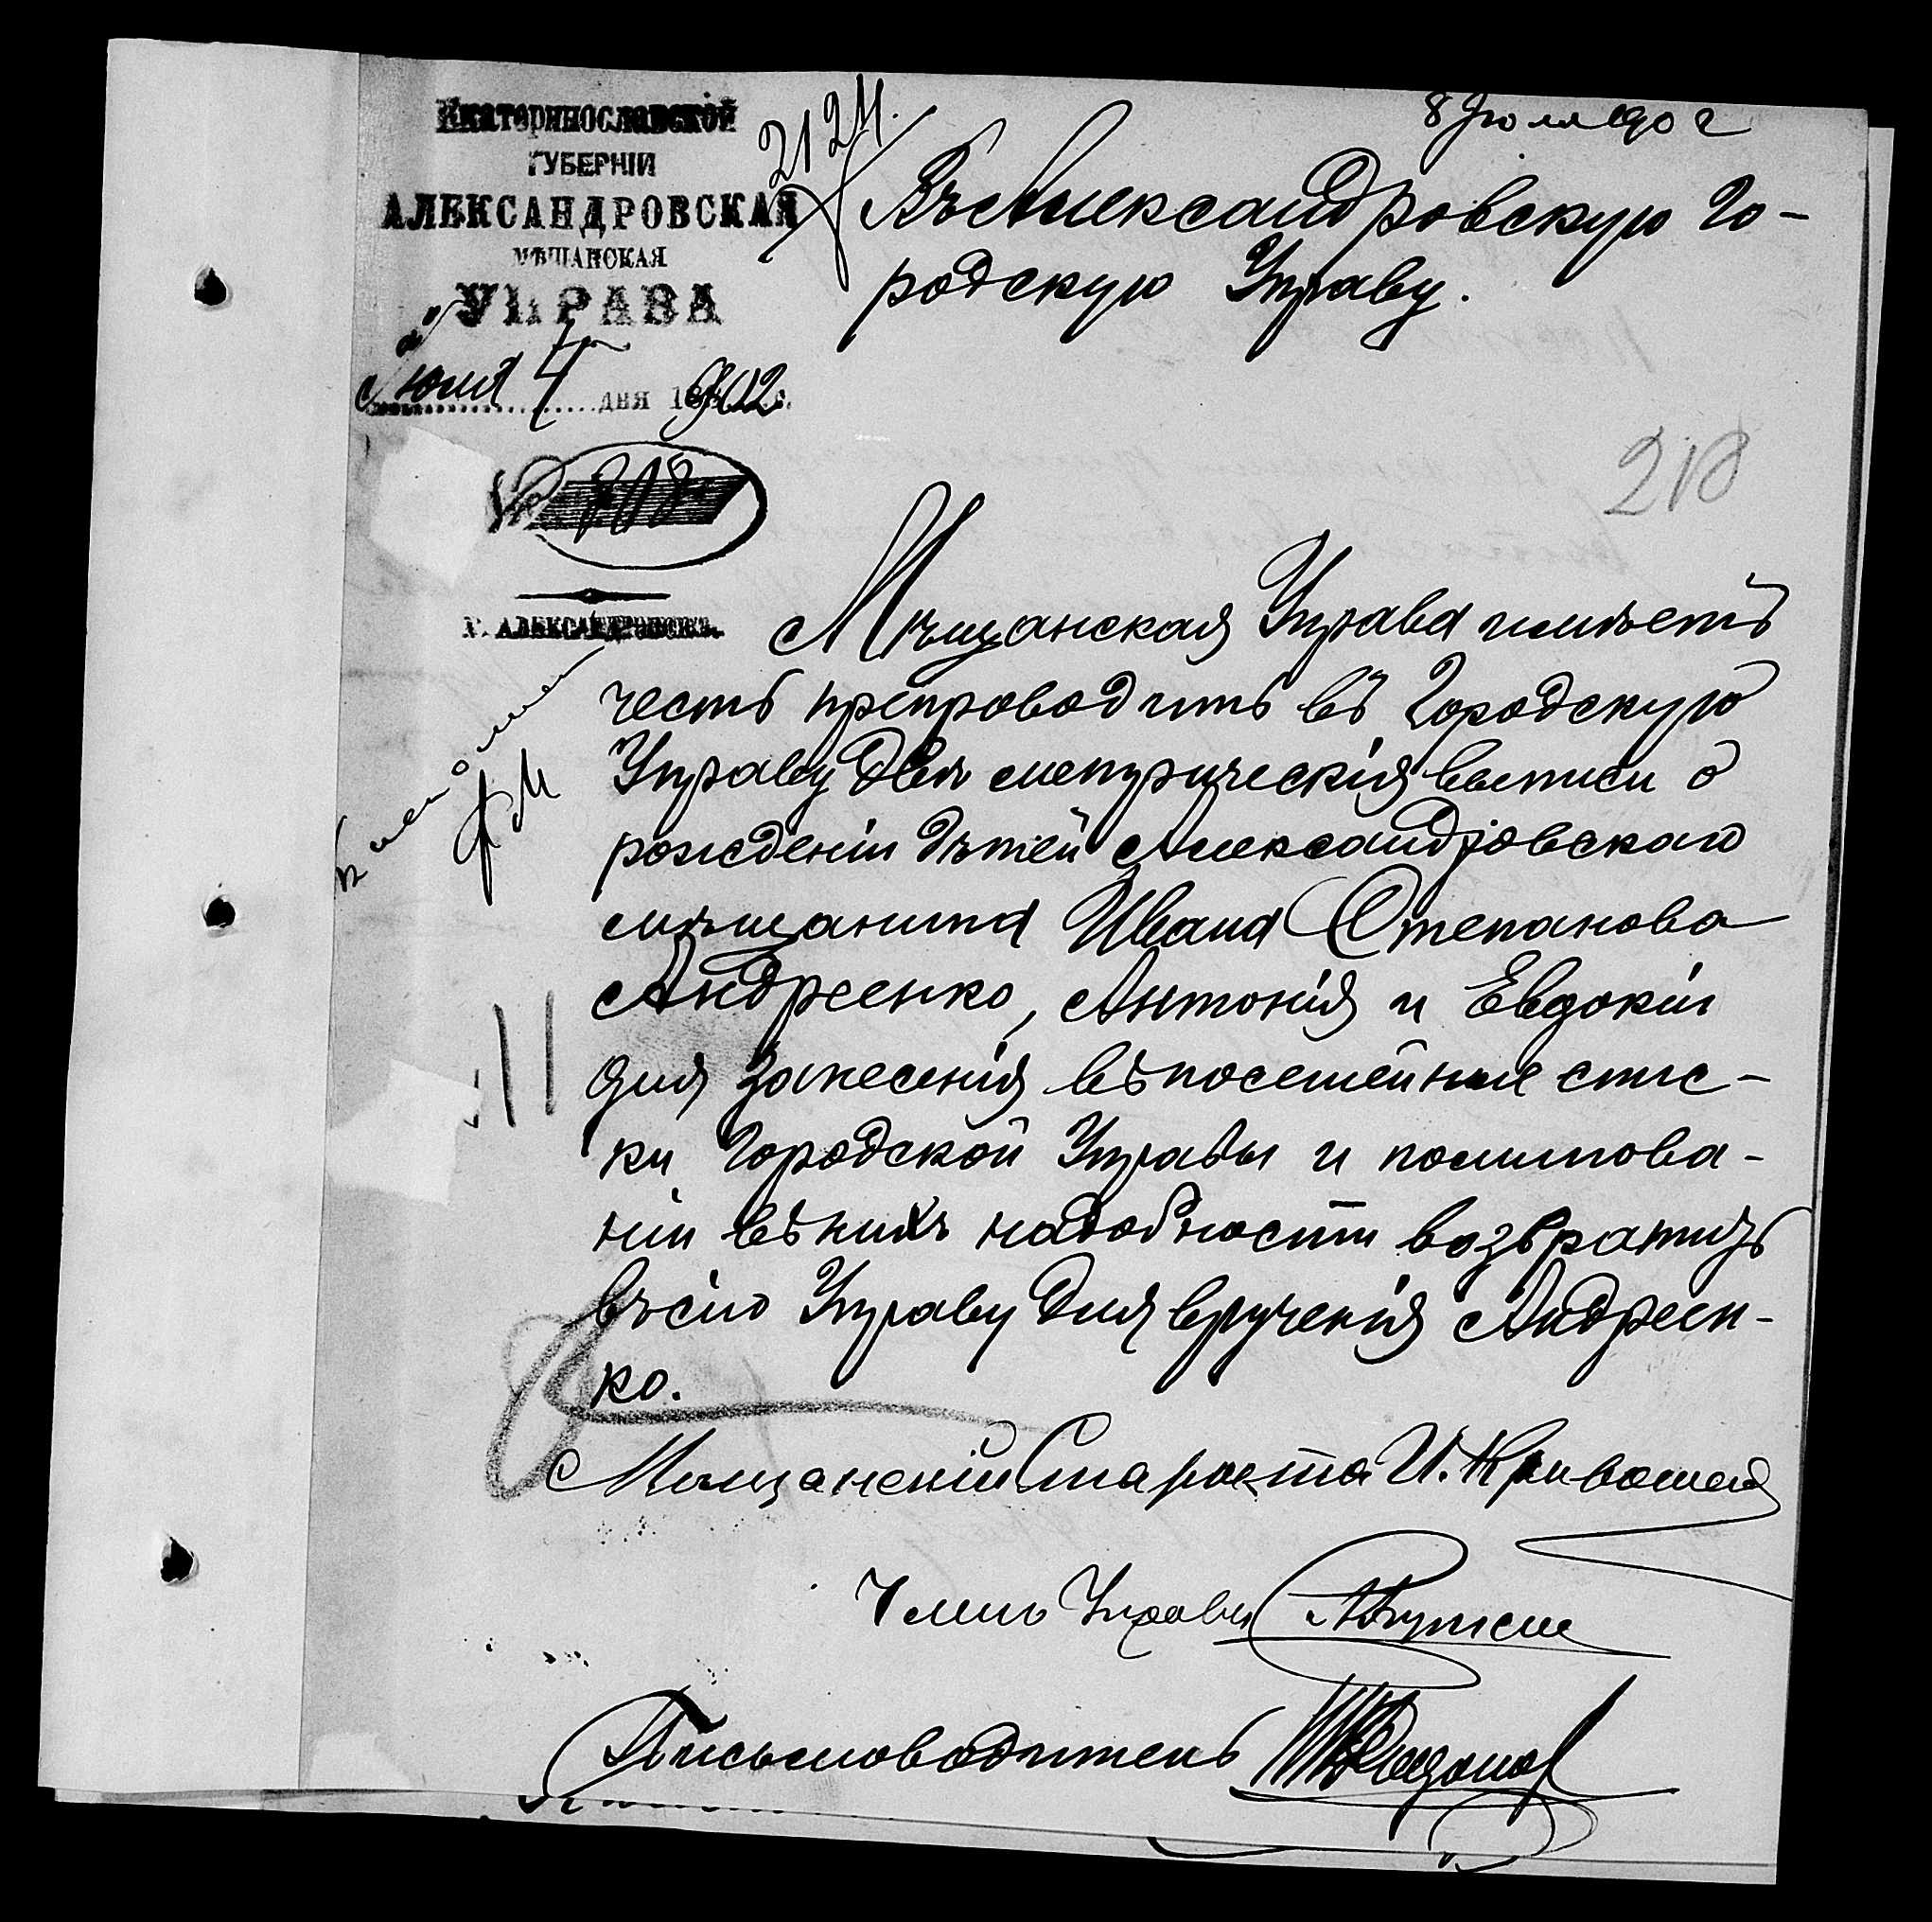 Екатеринославской
ГУБЕРНІИ
АЛЕКСАНДРОВСКАЯ
МѢЩАНСКАЯ
УПРАВА
Июля 4 дня 1902 г.
№ 808
Г. АЛЕКСАНДРОВСКЪ.
2124
8 Июля 1902
Въ Александровскую Го-
родскую Управу.
218
Мѣщанская Управа имѣетъ
честь препроводить въ Городскую
Управу двѣ метрическія выписи о
рожденіи дѣтей Александровскаго
мѣщанина Ивана Степанова
Андреенко, Антонія и Евдокіи
для занесенія въ посемейные спис-
ки Городской Управы и по минова-
ніи въ нихъ надобности возвратить
въ сію Управу для врученія Андреен-
ко.
Мѣщанскій Староста И. Кривошея
Членъ Управы
Письмоводитель